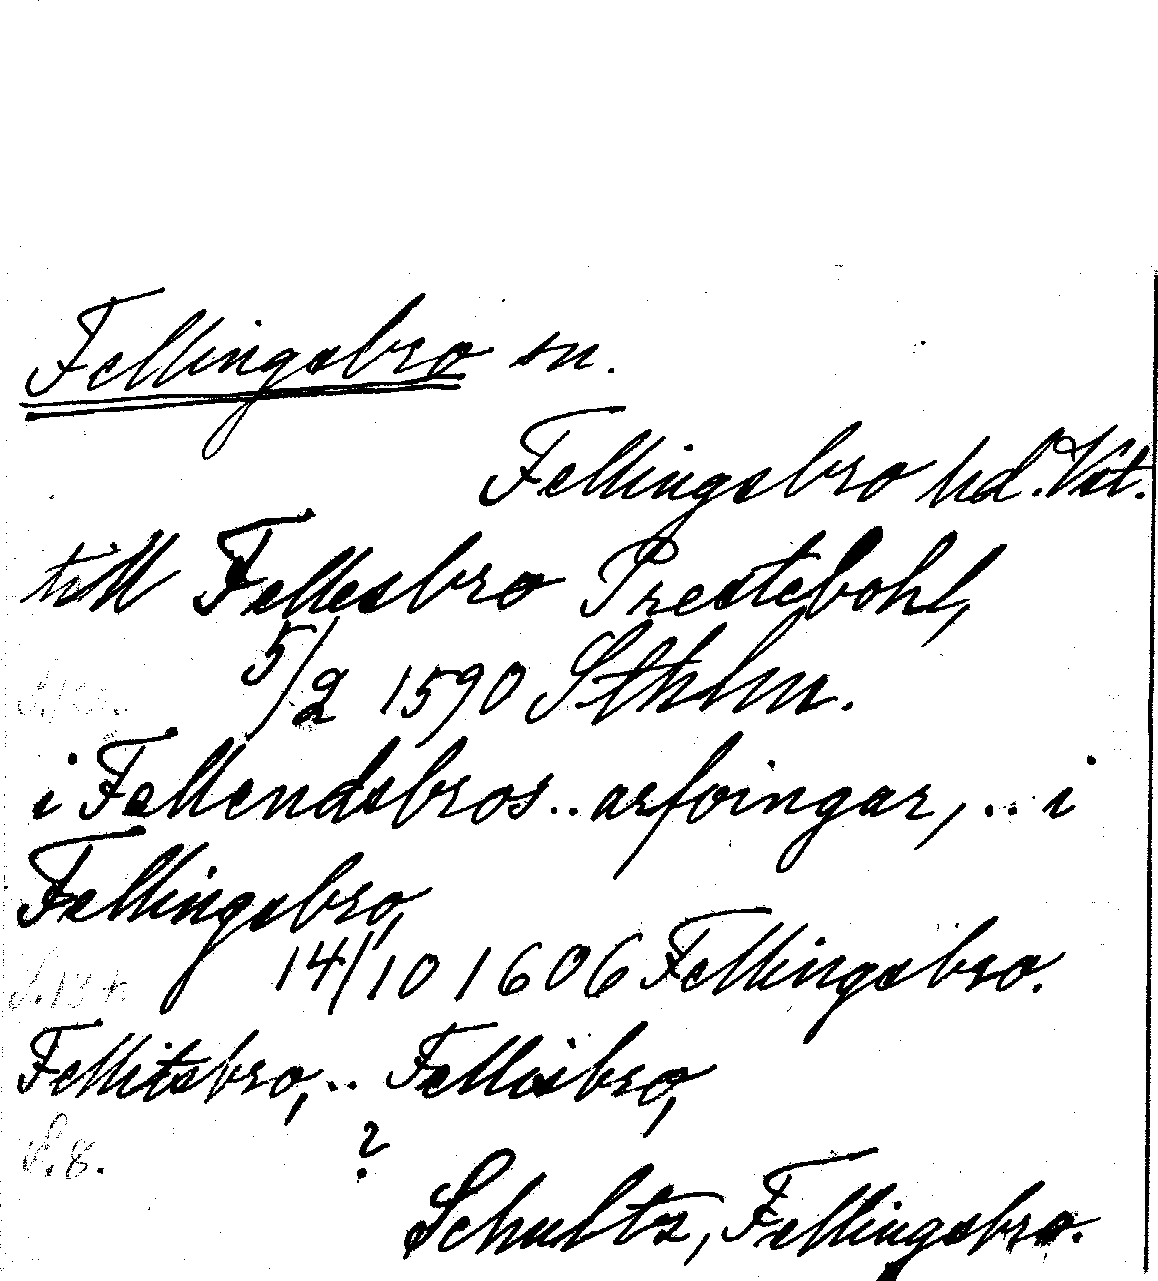 Fellingsbro sn.
Fellingsbro hd. Vst.
till Fellesbro Prestebohl,
5/2 1590 Sthlm.
i Fellendsbros.. arfvingar,... i
Fellingsbro,
14/10 1606 Fellingsbro.
Fellitsbro,... Felloisbro,
S. 8. ?
Schultz, Fellingsbro.